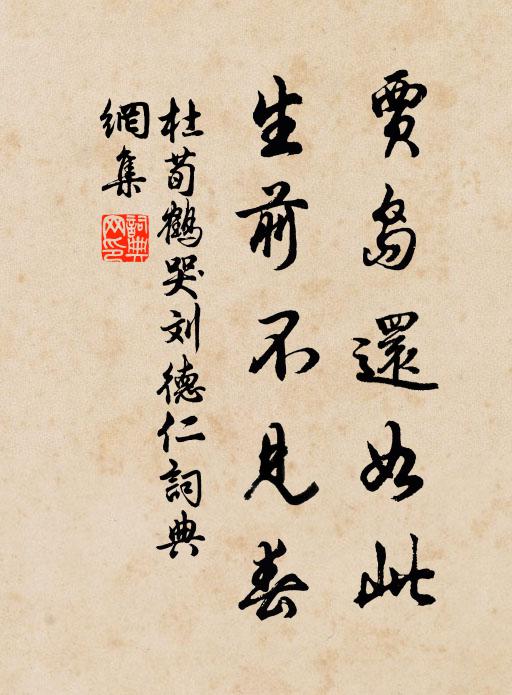 賈島還如此
生前不見春
杜荀鶴哭刘德仁詞典
網集
詞典
网印